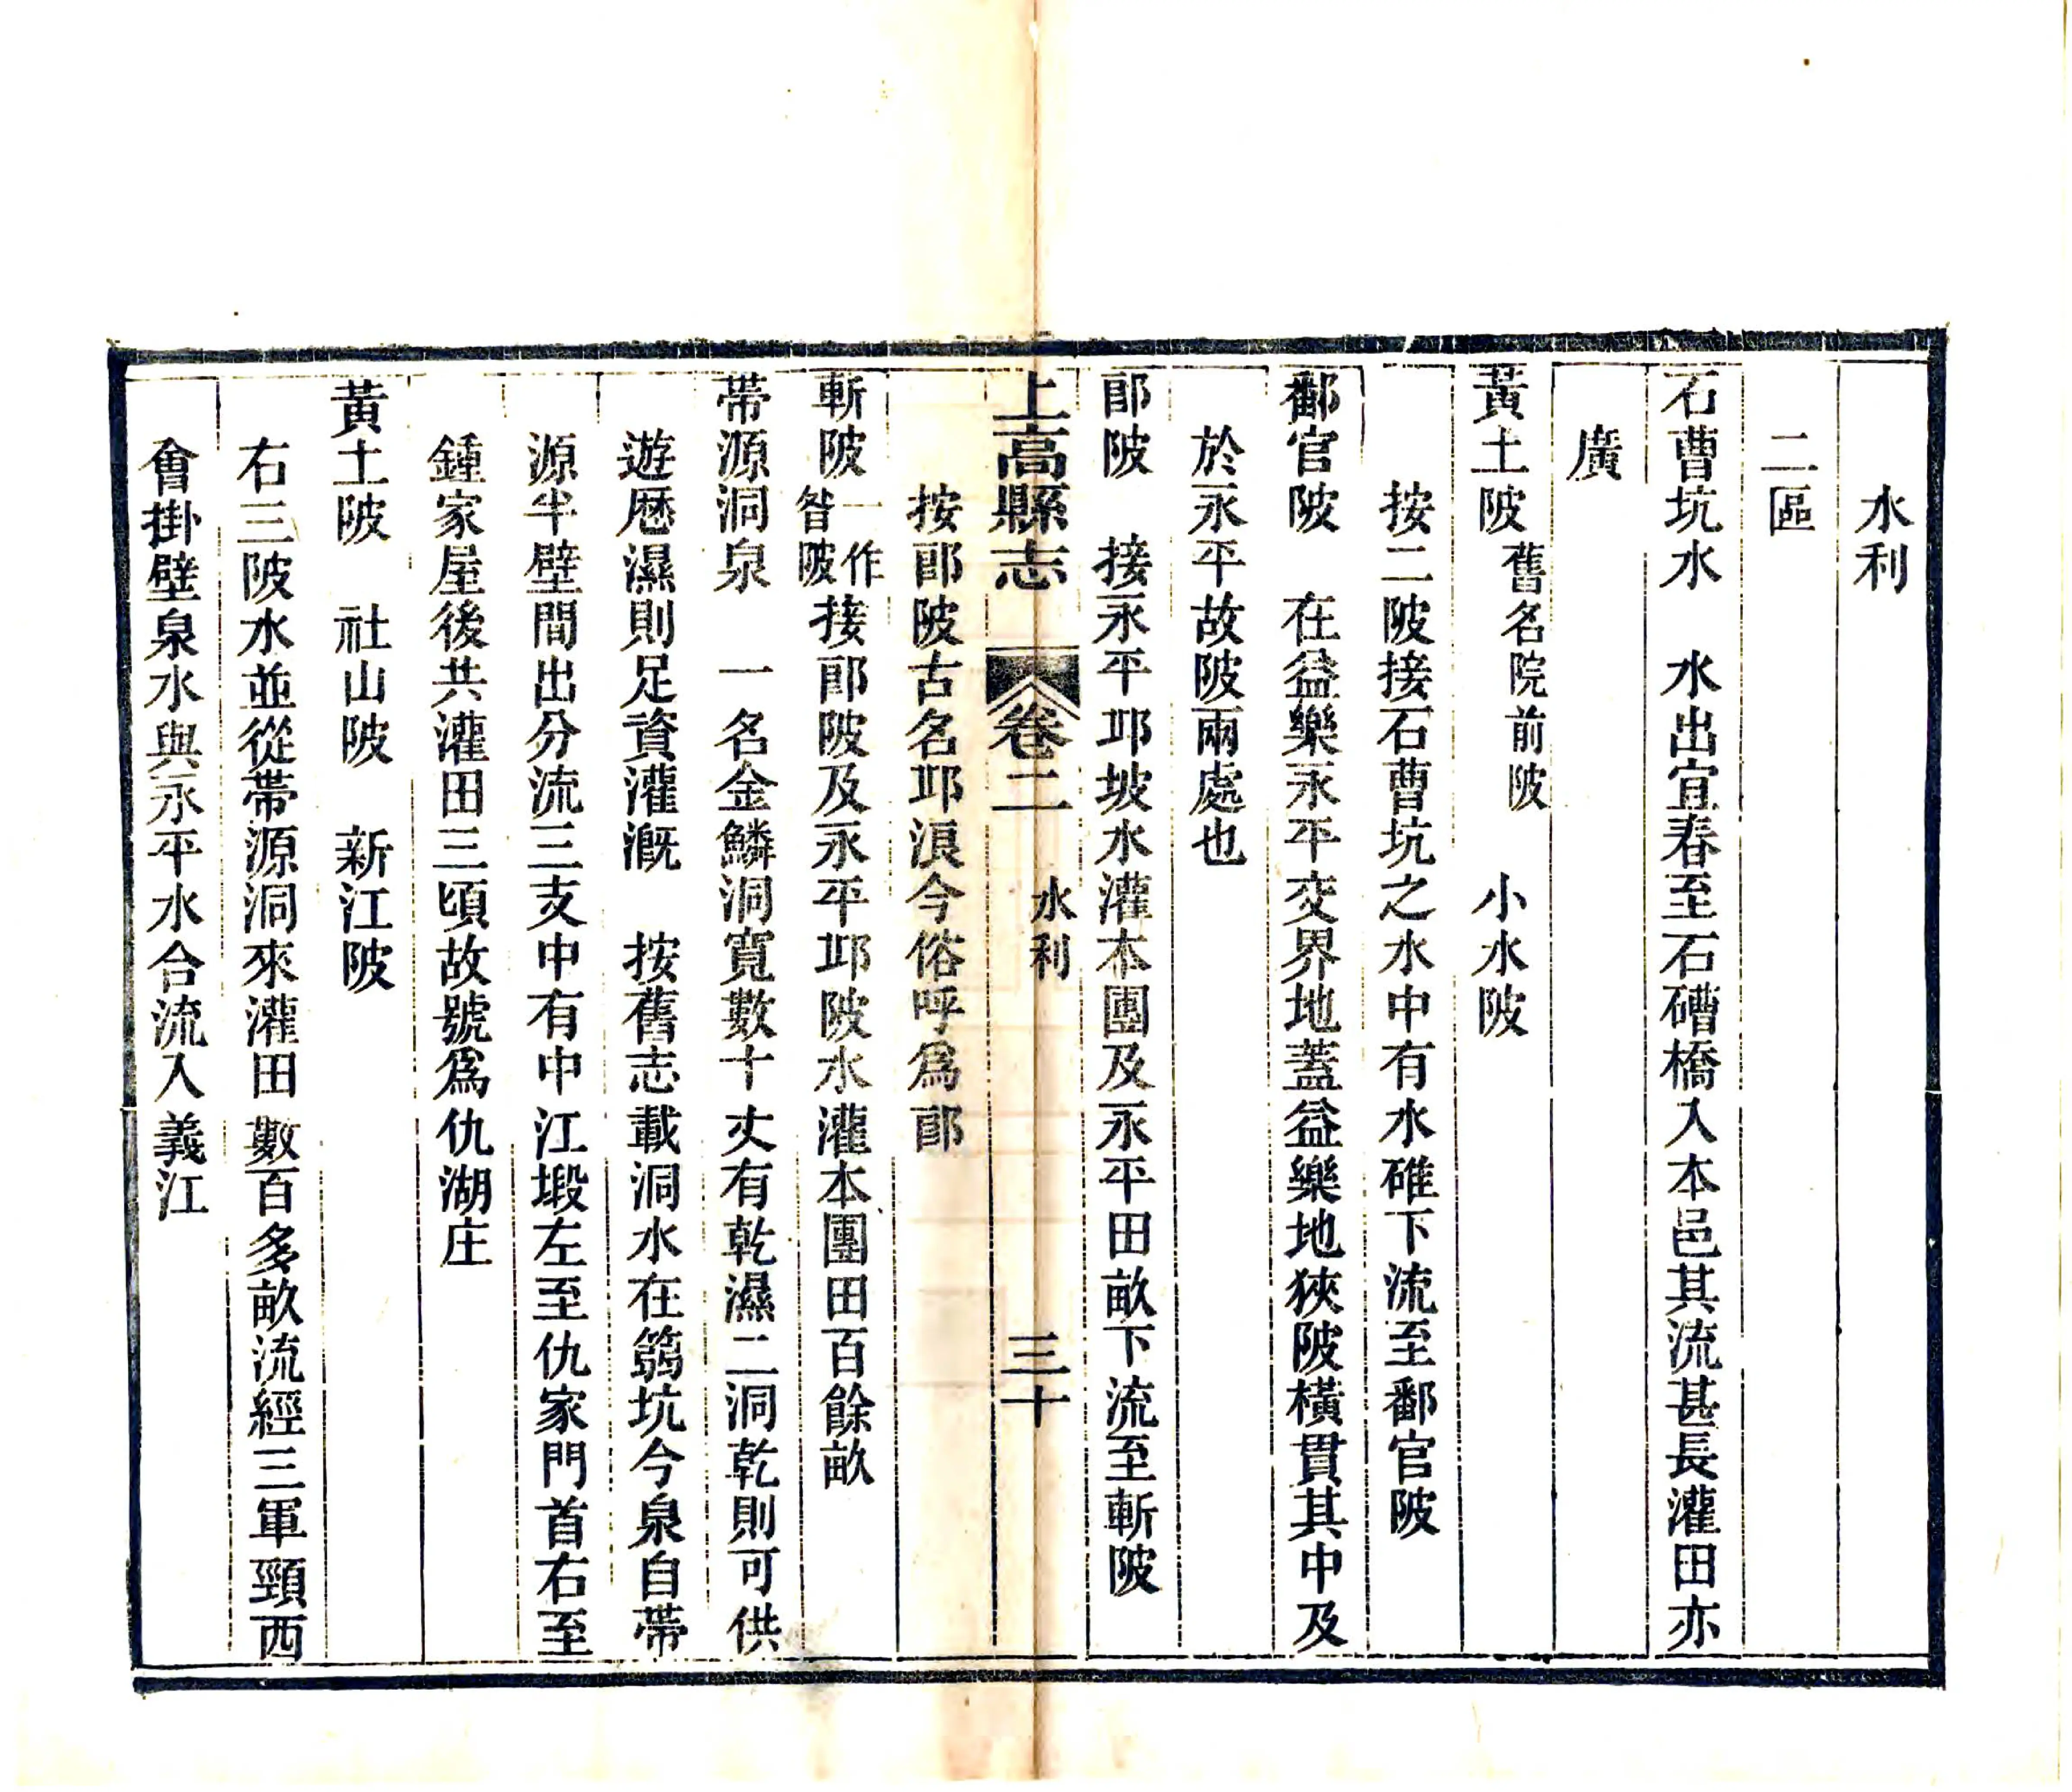 水利
二區
石曹坑水　水出宜春至石磳橋入本邑其流甚長灌田亦
廣
黃土陂舊名院前陂　小水陂
按二陂接石曹坑之水中有水碓下流至鄱官陂
鄱官陂　在益樂永平交界地蓋益樂地狹陂橫貫其中及
於永平故陂兩處也
郎陂　接永平邛坡水灌本團及永平田畝下流至斬陂
上高縣志　卷二　水利　三十
按郎陂古名邛浿今俗呼爲郎
斬陂一作㫼陂接郎陂及永平邛陂水灌本團田百餘畝
帶源洞泉　一名金鱗洞寬數十丈有乾濕二洞乾則可供
遊歷濕則足資灌溉　按舊志載洞水在篛坑今泉自帶
源半壁間出分流三支中有中江塅左至仇家門首右至
鍾家屋後共灌田三頃故號爲仇湖庄
黃土陂　社山陂　新江陂
右三陂水並從帶源洞來灌田數百多畝流經三軍頸西
會掛壁泉水與永平水合流入義江